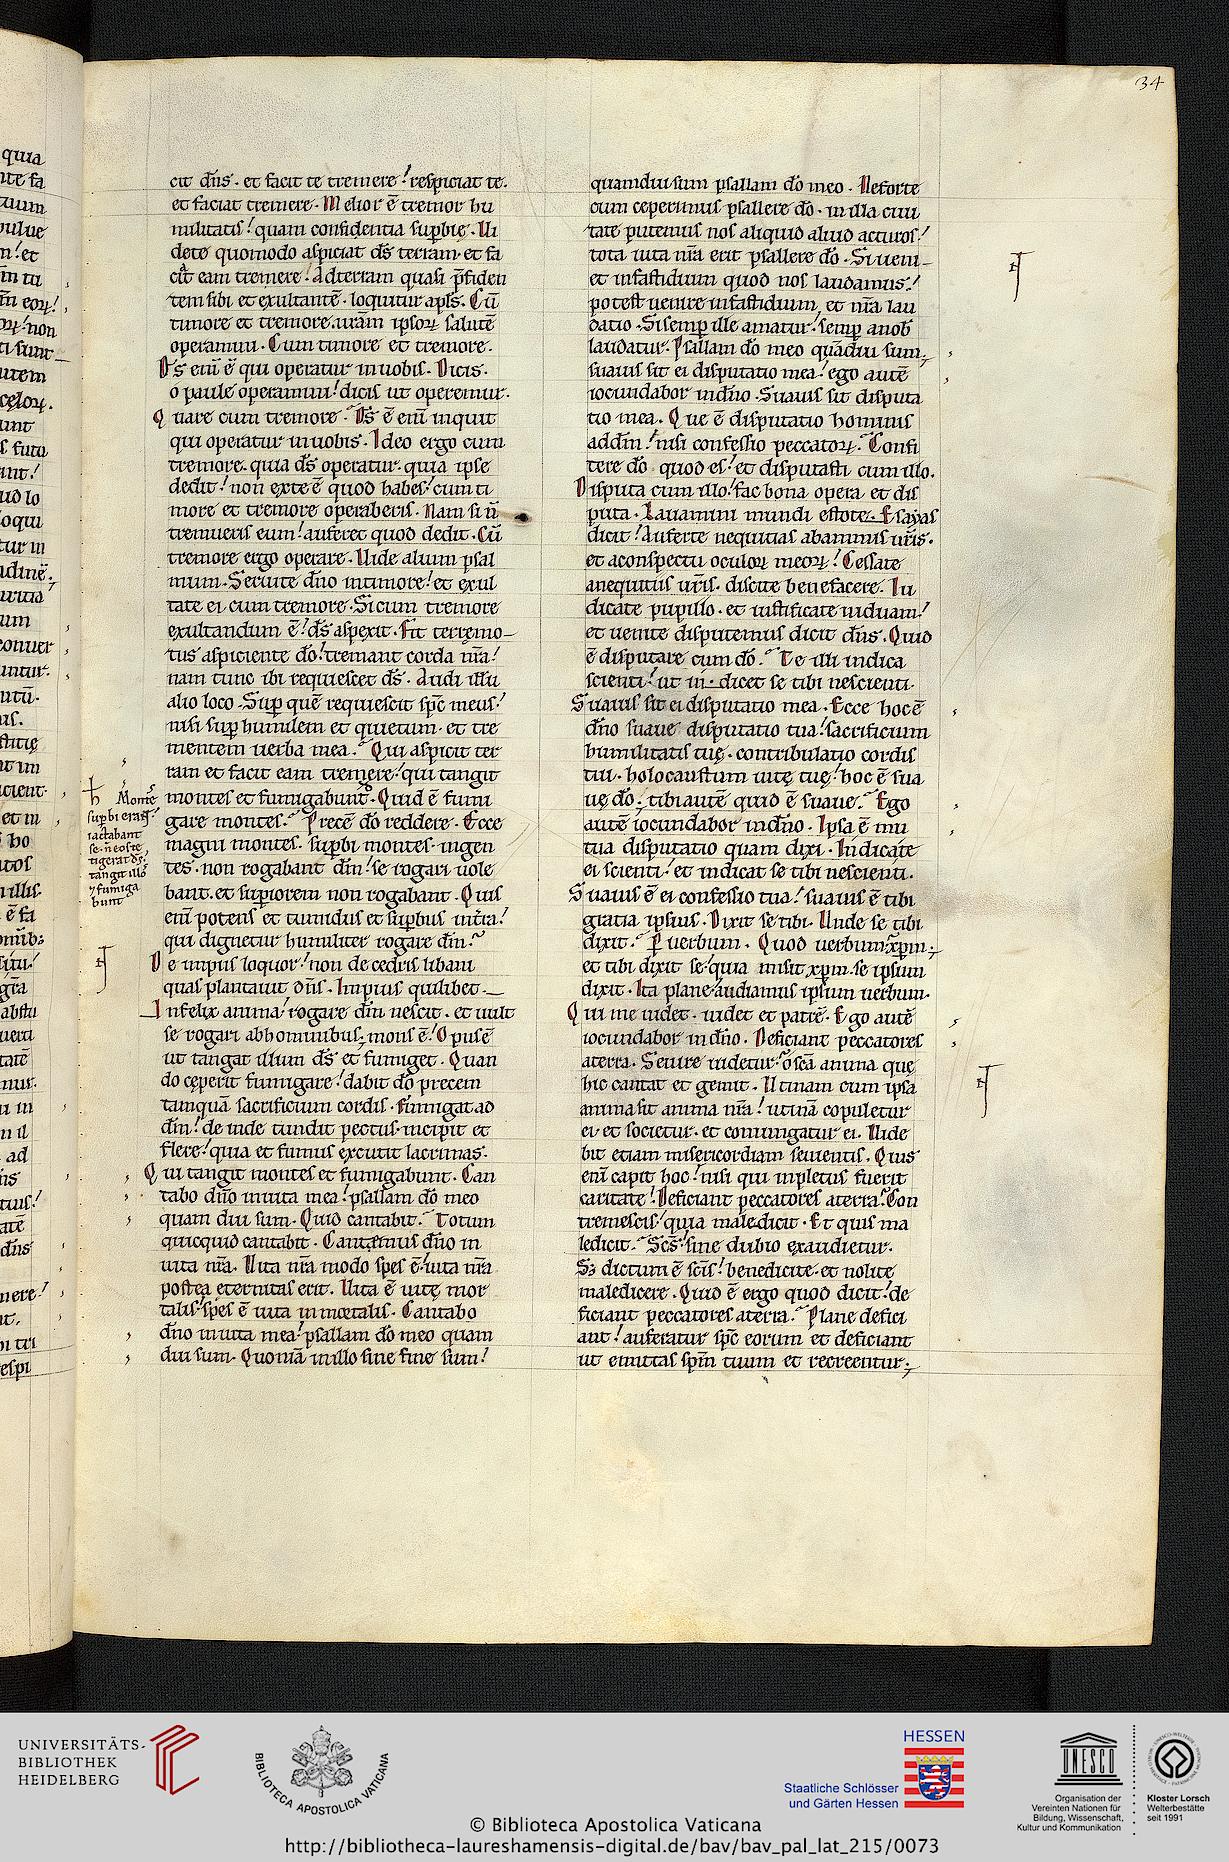 34
cit dñs · et facit te tremere! respiciat te.
et faciat tremere · Melior ē tremor hu
militatis! quam confidentia supbię · Ui
dete quomodo aspiciat ds̄ terram · et fa
cit eam tremere! Ad terram quasi p̄fiden
tem sibi et exultantē · loquitur apls̄ · Cū
timore et tremore urām ipsoꝝ salutē
operamini · Cum timore et tremore.
Ds̄ eni ē qui operatur in uobis · Dicis.
o paule operamini! dicis ut operemur.
Quare cum tremore · Ds̄ ē eni inquit
qui operatur in uobis · Ideo ergo cum
tremore · quia ds̄ operatur · quia ipse
dedit! non ex te ē quod habes! cum ti
more et tremore operaberis · Nam si ñ
tremueris eum! auferet quod dedit · Cū
tremore ergo operare · Uide alium psal
mum · Seruite dño in timore! et exul
tate ei cum tremore · Si cum tremore
exultandum ē! ds̄ aspexit · Fit terrę mo
tus aspiciente dō! tremant corda nr̄a!
nam tunc ibi requiescet ds̄ · Audi illū
alio loco · Sup quē requiescit spc̄ meus!
nisi sup humilem et quietum · et tre
mentem uerba mea · Qui aspicit ter
ram et facit eam tremere! qui tangit
montes et fumigabunt · Quid ē fumi
gare montes · Precē dō reddere · Ecce
magni montes · supbi montes · ingen
tes · non rogabant dm̄! se rogari uole
bant · et supiorem non rogabant · Quis
eni potens et tumidus et supbus in tr̄a!
qui dignetur humiliter rogare dm̄ ·
De impiis loquor! non de cedris libani
quas plantauit dñs · Impius quilibet ·
Infelix anima! rogare dm̄ nescit · et uult
se rogari ab hominibus; mons ē! Opus ē
ut tangat illum ds̄ et fumiget · Quan
do cęperit fumigare! dabit dō precem
tanquā sacrificium cordis · Fumigat ad
dm̄! de inde tundit pectus · incipit et
flere! quia et fumus excutit lacrimas ·
Qui tangit montes et fumigabunt · Can
tabo dño in uita mea! psallam dō meo
quam diu sum · Quid cantabit · Totum
quicquid cantabit · Cantemus dño in
uita nr̄a · Uita nr̄a modo spes ē! uita nr̄a
postea eternitas erit · Uita ē uitę mor
talis! spes ē uita inmortalis · Cantabo
dño in uita mea! psallam dō meo quam
diu sum · Quoniā in illo sine fine sum!
Montes
supbi erant!
iactabant
se · n̄ eos te
tigerat ds̄.
tangit illos
⁊ fumiga
bunt
quamdiu sum psallam dō meo · Ne forte
cum ceperimus psallere dō · in illa ciui
tate putemus nos aliquid aliud acturos!
tota uita nr̄a erit psallere dō · Si ueni
et in fastidium quod nos laudamus!
potest uenire in fastidium et nr̄a lau
datio · Si semp ille amatur! semp a nob
laudatur · Psallam dō meo quādiu sum;
suauis sit ei disputatio mea! ego autē
iocundabor in dño · Suauis sit disputa
tio mea · Que ē disputatio hominis
ad dm̄! nisi confessio peccatoꝝ · Confi
tere dō quod es! et disputasti cum illo.
Disputa cum illo! fac bona opera et dis
puta · Lauamini mundi estote · Esayas
dicit! Auferte nequitias ab animis uris ·
et a conspectu oculoꝝ meoꝝ! Cessate
a nequitiis uris · discite benefacere · Iu
dicate pupillo · et iustificate uiduam!
et uenite disputemus dicit dñs · Quid
ē disputare cum dō · Te illi indica
scienti! ut indicet se tibi nescienti.
Suauis sit ei disputatio mea · Ecce hoc ē
dño suaue disputatio tua! sacrificium
humilitatis tuę · contribulatio cordis
tui · holocaustum uitę tuę! hoc ē sua
ue dō; tibi autē quid ē suaue · Ego
autē iocundabor in dño · Ipsa ē mu
tua disputatio quam dixi · Indicate
ei scienti! et indicat se tibi nescienti.
Suauis ē ei confessio tua! suauis ē tibi
gratia ipsius · Dixit se tibi · Unde se tibi
dixit · P uerbum · Quod uerbum · xpm;
et tibi dixit se! quia misit xpm · se ipsum
dixit · Ita plane! audiamus ipsum uerbum.
Qui me uidet · uidet et patrē · Ego autē
iocundabor in dño · Deficiant peccatores
a terra · Seuire uidetur! o sc̄a anima que
hic cantat et gemit · Utinam cum ipsa
anima sit anima nr̄a! utinā copuletur
ei · et societur · et coniungatur ei · Uide
bit etiam misericordiam seuientis · Quis
eni capit hoc! nisi qui inpletus fuerit
caritate! Deficiant peccatores a terra · Con
tremescis! quia maledicit · Et quis ma
ledicit · Sc̄s · sine dubio exaudietur ·
Sꝫ dictum ē sc̄is! benedicite · et nolite
maledicere · Quid ē ergo quod dicit! de
ficiant peccatores a terra · Plane defici
ant! auferatur spc̄ eorum et deficiant
ut emittas spm̄ tuum et recreentur;
UNIVERSITÄTS-
BIBLIOTHEK
HEIDELBERG
BIBLIOTECA APOSTOLICA VATICANA
HESSEN
Staatliche Schlösser
und Gärten Hessen
UNESCO
Organisation der
Vereinten Nationen für
Bildung, Wissenschaft,
Kultur und Kommunikation
Kloster Lorsch
Welterbestätte
seit 1991
© Biblioteca Apostolica Vaticana
http://bibliotheca-laureshamensis-digital.de/bav/bav_pal_lat_215/0073